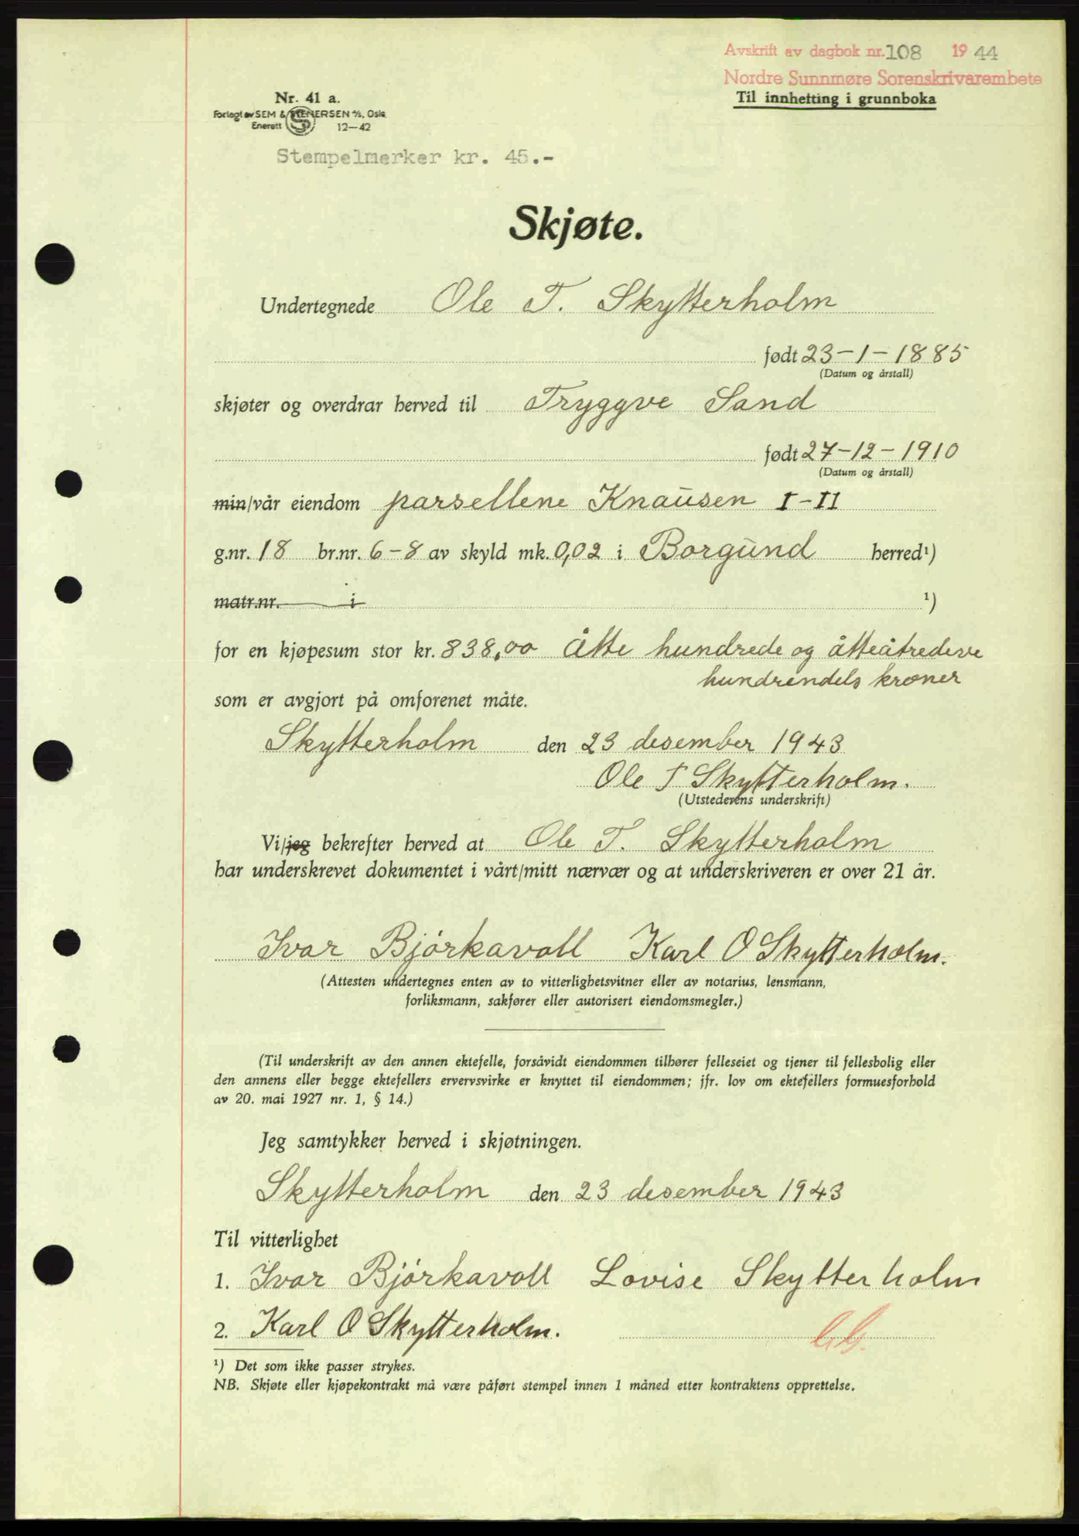 Avskrift av dagbok nr. 108 1944
Nordre Sunnmøre Sorenskrivarembete
Til innhefting i grunnboka
Nr. 41 a.
Forlagt av SEM & STENERSEN A/S, Oslo
Enerett 12-42
Stempelmerker kr. 45.-
Skjøte.
Undertegnede Ole T. Skytterholm
født 23-1-1885
(Datum og årstall)
skjøter og overdrar herved til Tryggve Sand
født 27-12-1910
(Datum og årstall)
min/vår eiendom parsellene Knausen I-II
g.nr. 18 br.nr. 6-8 av skyld mk. 0,02 i Borgund herred¹)
matr.nr. i ¹)
for en kjøpesum stor kr. 838,00 Åtte hundrede og åtteåtredeve
hundrendels kroner
som er avgjort på omforenet måte.
Skytterholm den 23 desember 1943
Ole T Skytterholm.
(Utstederens underskrift)
Vi/jeg bekrefter herved at Ole T. Skytterholm
har underskrevet dokumentet i vårt/mitt nærvær og at underskriveren er over 21 år.
Ivar Bjørkavoll Karl O Skytterholm.
(Attesten undertegnes enten av to vitterlighetsvitner eller av notarius, lensmann,
forliksmann, sakfører eller autorisert eiendomsmegler.)
(Til underskrift av den annen ektefelle, forsåvidt eiendommen tilhører felleseiet og tjener til fellesbolig eller
den annens eller begge ektefellers ervervsvirke er knyttet til eiendommen; jfr. lov om ektefellers formuesforhold
av 20. mai 1927 nr. 1, § 14.)
Jeg samtykker herved i skjøtningen.
Skytterholm den 23 desember 1943
Til vitterlighet
1. Ivar Bjørkavoll Lovise Skytterholm
2. Karl O Skytterholm.
¹) Det som ikke passer strykes.
NB. Skjøte eller kjøpekontrakt må være påført stempel innen 1 måned etter kontraktens opprettelse.